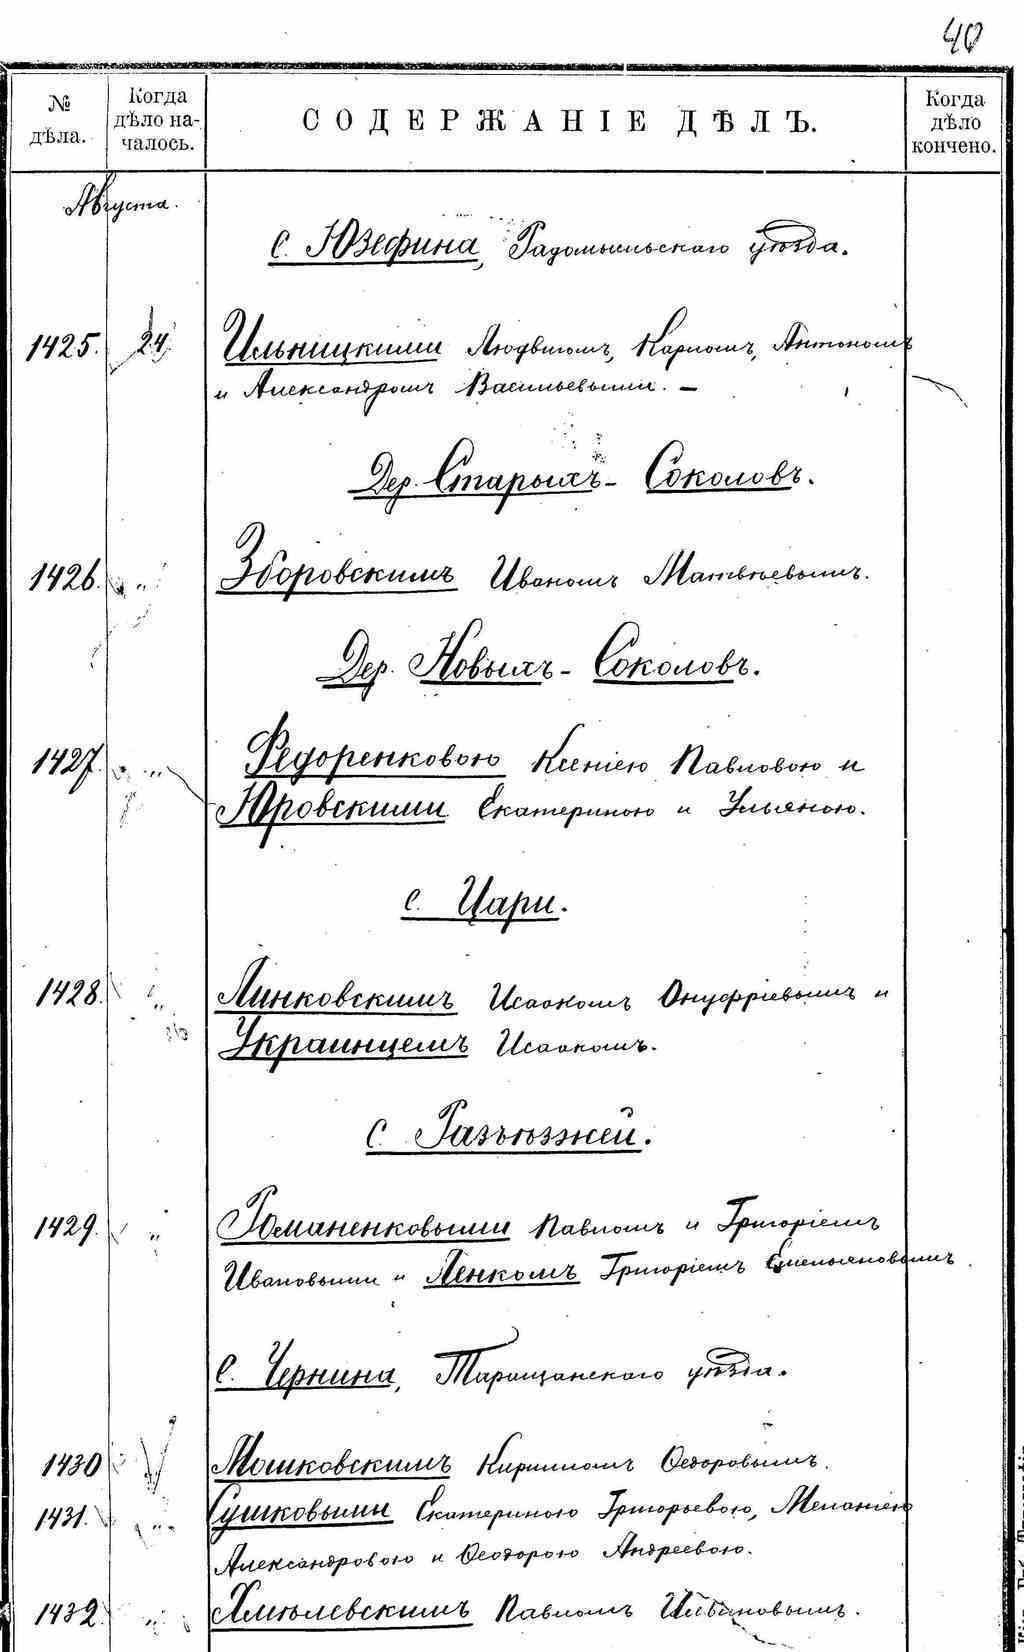 40
№ дѣла.
Когда дѣло на-
чалось.
СОДЕРЖАНІЕ ДѢЛЪ.
Когда дѣло кончено.
Августа.
с. Юзефина, Радомысльскаго уѣзда.
1425. 24. Ильницкими Людвигомъ, Карломъ, Антономъ
и Александромъ Васильевыми. —
Дер. Старыхъ - Соколовъ.
1426. „ Зборовскимъ Иваномъ Матвѣевымъ.
Дер. Новыхъ - Соколовъ.
1427. „ Федоренковою Ксеніею Павловою и
Юровскими Екатериною и Ульяною.
с. Цари.
1428. „ Линковскимъ Исаакомъ Онуфріевымъ и
Украинцемъ Исаакомъ.
с. Разъѣзжей.
1429. „ Романенковыми Павломъ и Григоріемъ
Ивановыми и Ленкомъ Григоріемъ Емельяновымъ.
С. Чернина, Таращанскаго уѣзда.
1430 Мошковскимъ Кириломъ Ѳедоровымъ.
1431. „ Сушковыми Екатериною Григорьевою, Меланіею
Александровою и Ѳеодорою Андреевою.
1432 „ Хмѣлевскимъ Павломъ Ивановымъ.